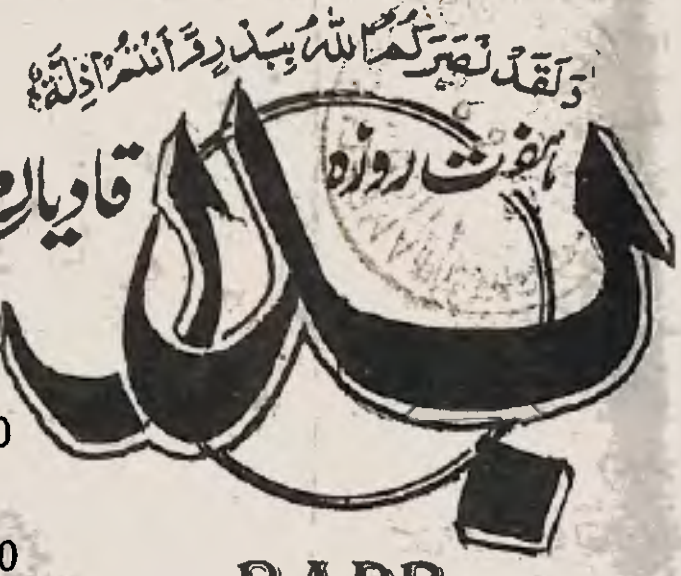 وَلَقَدْ نَصَرَكُمُ اللّٰهُ بِبَدْرٍ وَّاَنْتُمْ اَذِلَّةٌ
ہفت روزہ
قادیان
بدر
0
0
BADR